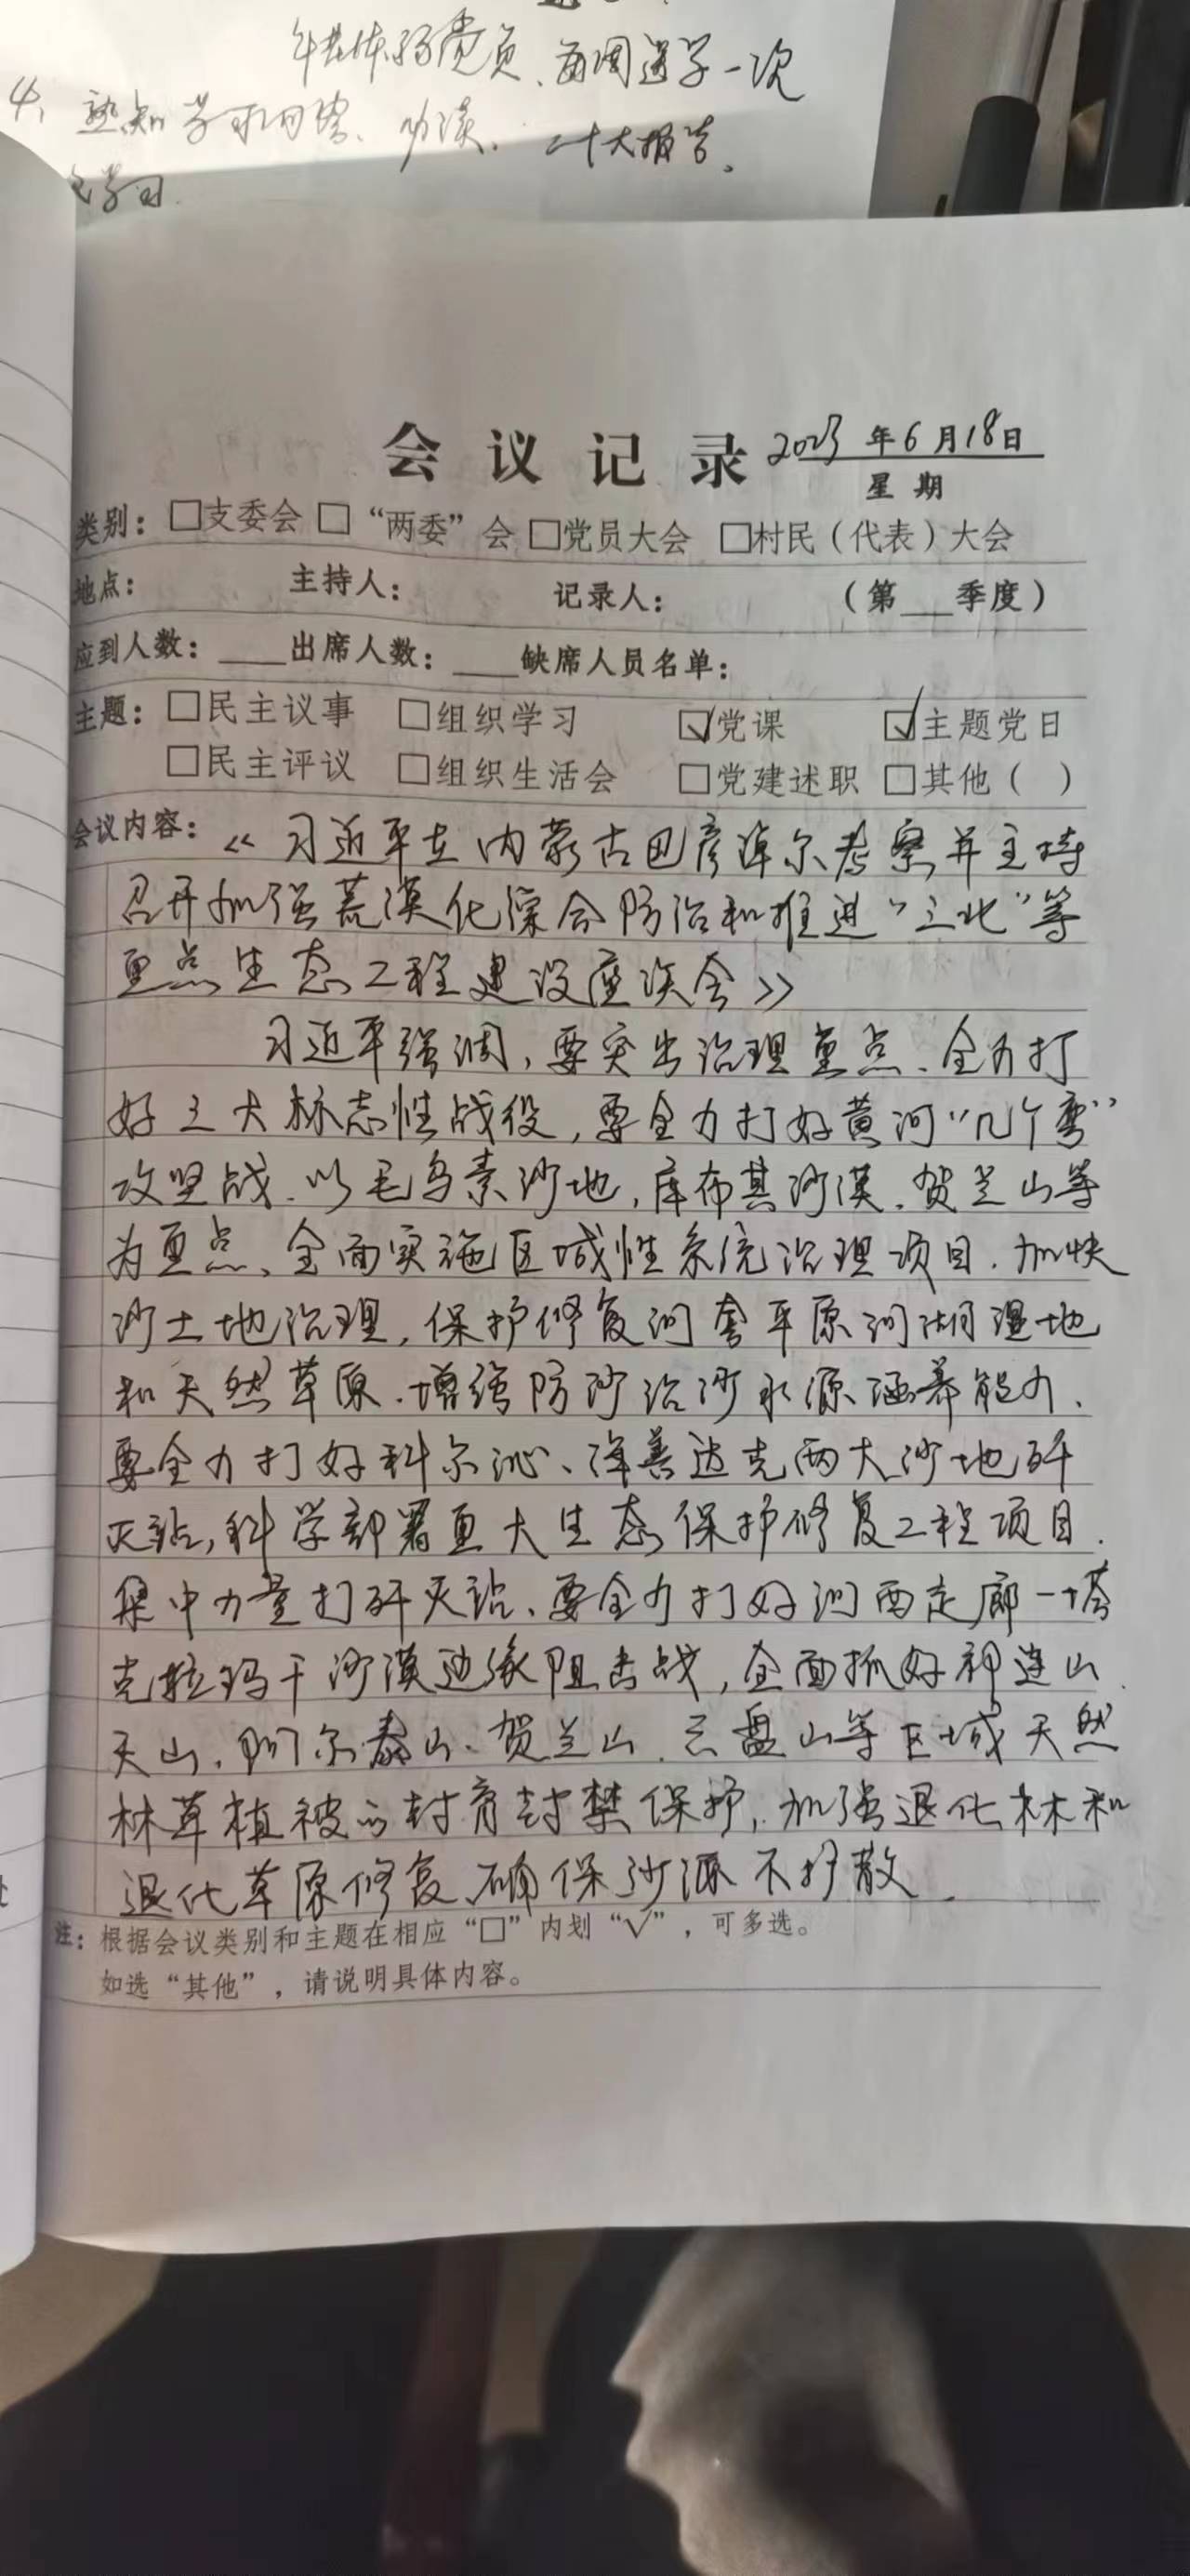 年老体弱党员、每周送学一次
4、熟知学习内容、 二十大报告。
学习
会议记录 2023年6月18日
星期
类别：□支委会 □“两委”会 □党员大会 □村民（代表）大会
地点： 主持人： 记录人： （第___季度）
应到人数：____出席人数：____缺席人员名单：
主题：□民主议事 □组织学习 ☑党课 ☑主题党日
□民主评议 □组织生活会 □党建述职 □其他（ ）
会议内容：《习近平在内蒙古巴彦淖尔考察并主持
召开加强荒漠化综合防治和推进“三北”等
重点生态工程建设座谈会》
习近平强调，要突出治理重点、全力打
好三大标志性战役，要全力打好黄河“几个弯”
攻坚战、以毛乌素沙地，库布其沙漠、贺兰山等
为重点、全面实施区域性系统治理项目、加快
沙土地治理，保护修复河套平原河湖湿地
和天然草原、增强防沙治沙水源涵养能力、
要全力打好科尔沁、浑善达克两大沙地歼
灭站，科学部署重大生态保护修复工程项目、
集中力量打歼灭站、要全力打好河西走廊一塔
克拉玛干沙漠边缘阻击战，全面抓好祁连山、
天山、阿尔泰山、贺兰山、六盘山等区域天然
林草植被的封育封禁保护，加强退化林和
退化草原修复、确保沙源不扩散、
注：根据会议类别和主题在相应“□”内划“√”，可多选。
如选“其他”，请说明具体内容。